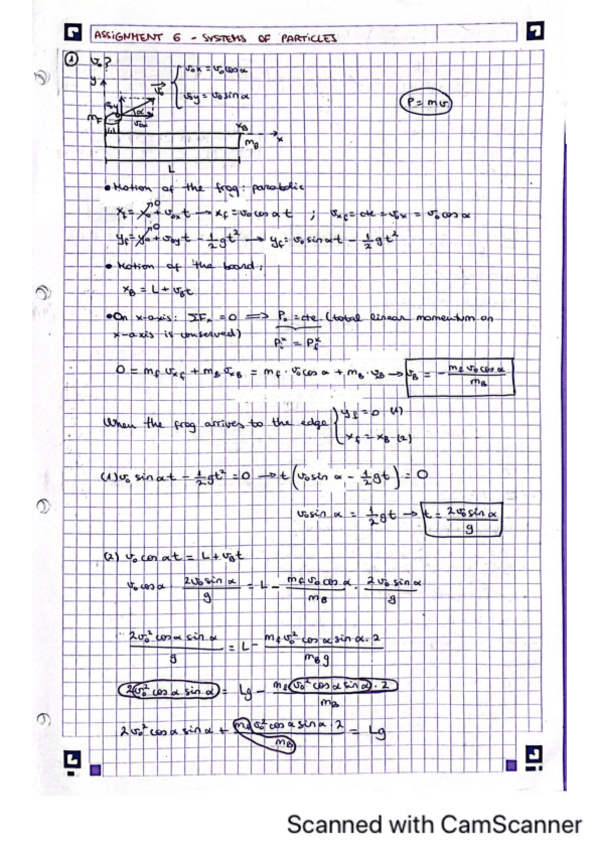 ASSIGNMENT 6 - SYSTEMS OF PARTICLES
① v₀?
v₀x = v₀cosα
v₀y = v₀sinα
P = mv
y
v₀
v₀y
α
v₀x
m_F
x_B
x
m_B
L
• Motion of the frog: parabolic
x_f = x₀ + v₀x t → x_f = v₀ cosα t ; v_xf = cte = v₀x = v₀ cosα
y_f = y₀ + v₀y t - 1/2 gt² → y_f = v₀ sinα t - 1/2 gt²
• Motion of the board:
x_B = L + v_B t
• On x-axis: ΣFₓ = 0 ⟹ Pₓ = cte (total linear momentum on
x-axis is conserved)
P₀ˣ = P_fˣ
0 = m_f v_xf + m_B v_xB = m_f · v₀ cosα + m_B · v_B → v_B = - m_f v₀ cosα / m_B
When the frog arrives to the edge { y_f = 0 (1)
x_f = x_B (2)
(1) v₀ sinα t - 1/2 gt² = 0 → t (v₀ sin α - 1/2 gt) = 0
v₀ sin α = 1/2 gt → t = 2v₀ sin α / g
(2) v₀ cos α t = L + v_B t
v₀ cosα · 2v₀ sin α / g = L - m_f v₀ cos α / m_B · 2v₀ sin α / g
2v₀² cosα sin α / g = L - m_f v₀² cosα sinα · 2 / m_B g
2v₀² cosα sin α = Lg - m_f v₀² cosα sinα · 2 / m_B
2v₀² cosα sin α + m_f v₀² cosα sinα · 2 / m_B = Lg
Scanned with CamScanner